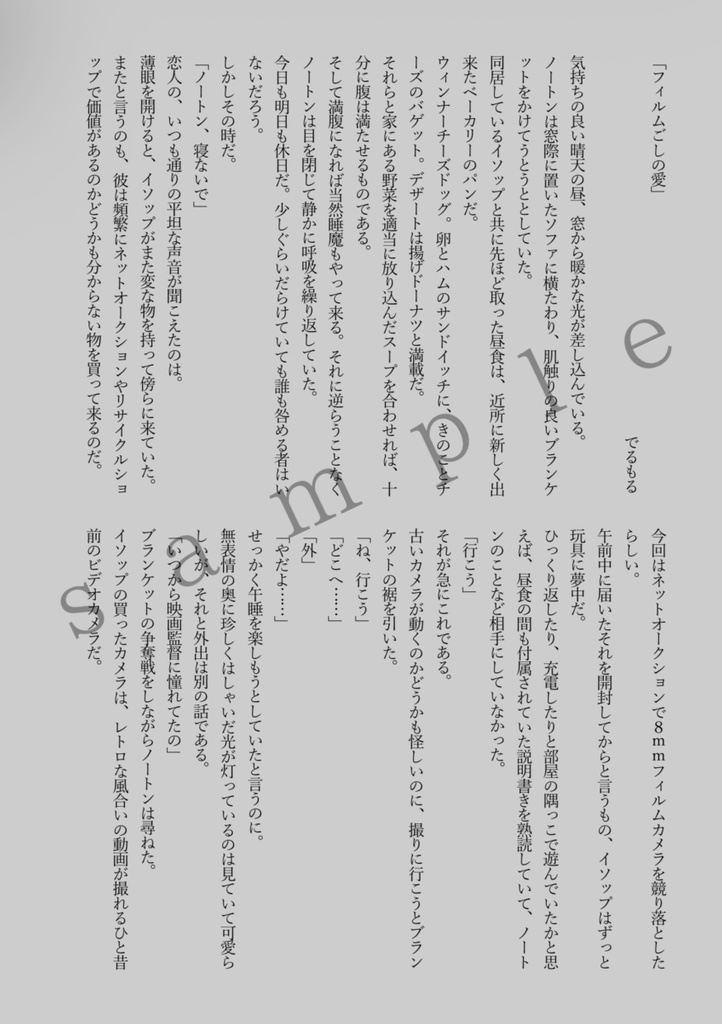 「フィルムごしの愛」
でるもる
気持ちの良い晴天の昼、窓から暖かな光が差し込んでいる。
ノートンは窓際に置いたソファに横たわり、肌触りの良いブランケ
ットをかけてうとうととしていた。
同居しているイソップと共に先ほど取った昼食は、近所に新しく出
来たベーカリーのパンだ。
ウィンナーチーズドッグ。卵とハムのサンドイッチに、きのことチ
ーズのバゲット。デザートは揚げドーナツと満載だ。
それらと家にある野菜を適当に放り込んだスープを合わせれば、十
分に腹は満たせるものである。
そして満腹になれば当然睡魔もやって来る。それに逆らうことなく
ノートンは目を閉じて静かに呼吸を繰り返していた。
今日も明日も休日だ。少しぐらいだらけていても誰も咎める者はい
ないだろう。
しかしその時だ。
「ノートン、寝ないで」
恋人の、いつも通りの平坦な声音が聞こえたのは。
薄眼を開けると、イソップがまた変な物を持って傍らに来ていた。
またと言うのも、彼は頻繁にネットオークションやリサイクルショ
ップで価値があるのかどうかも分からない物を買って来るのだ。
今回はネットオークションで8mmフィルムカメラを競り落とした
らしい。
午前中に届いたそれを開封してからと言うもの、イソップはずっと
玩具に夢中だ。
ひっくり返したり、充電したりと部屋の隅っこで遊んでいたかと思
えば、昼食の間も付属されていた説明書きを熟読していて、ノート
ンのことなど相手にしていなかった。
「行こう」
それが急にこれである。
古いカメラが動くのかどうかも怪しいのに、撮りに行こうとブラン
ケットの裾を引いた。
「ね、行こう」
「どこへ……」
「外」
「やだよ……」
せっかく午睡を楽しもうとしていたと言うのに。
無表情の奥に珍しくはしゃいだ光が灯っているのは見ていて可愛ら
しいが、それと外出は別の話である。
「いつから映画監督に憧れてたの」
ブランケットの争奪戦をしながらノートンは尋ねた。
イソップの買ったカメラは、レトロな風合いの動画が撮れるひと昔
前のビデオカメラだ。
sample